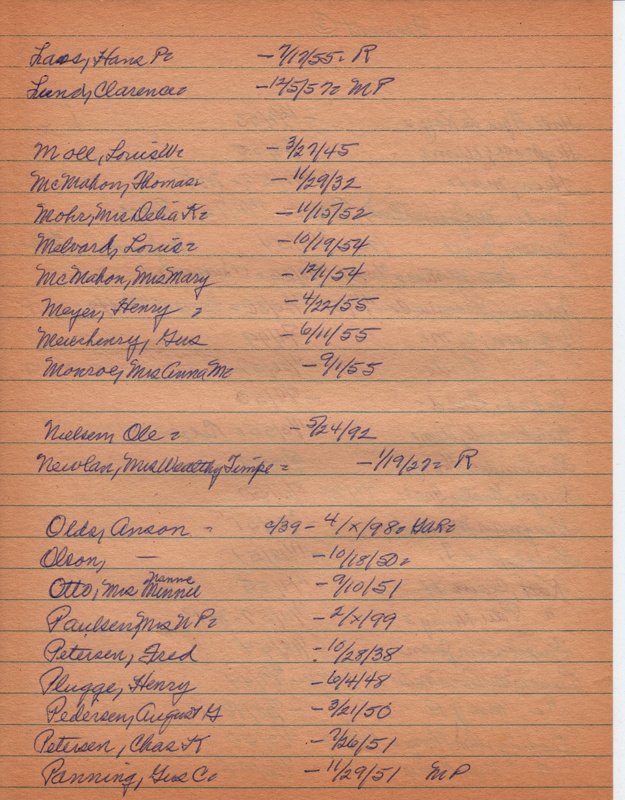 Laos, Hans P. - 7/17/55. R
Lund, Clarence - 12/5/57. MP
Moll, Louis W. - 3/27/45
McMahon, Thomas - 11/29/32
Mohr, Mrs Delia K. - 11/15/52
Melvard, Louis - 10/19/54
McMahon, Mrs Mary - 12/1/54
Meyer, Henry - 4/22/55
Meierhenry, Gus - 6/11/55
Monroe, Mrs Anna M. - 9/1/55
Nielsen, Ole - 5/24/92
Newlan, Mrs Wealthy Timpe - 1/19/27. R
Olds, Anson - c/39 - 4/x/98. GAR.
Olson, — - 10/18/50.
Nanne
Otto, Mrs Minnie - 9/10/51
Paulsen, Mrs N P. - 2/x/99
Petersen, Fred - 10/28/38
Plugge, Henry - 6/4/48
Pedersen, August G - 3/21/50
Petersen, Chas K - 7/26/51
Panning, Gus C. - 11/29/51 MP